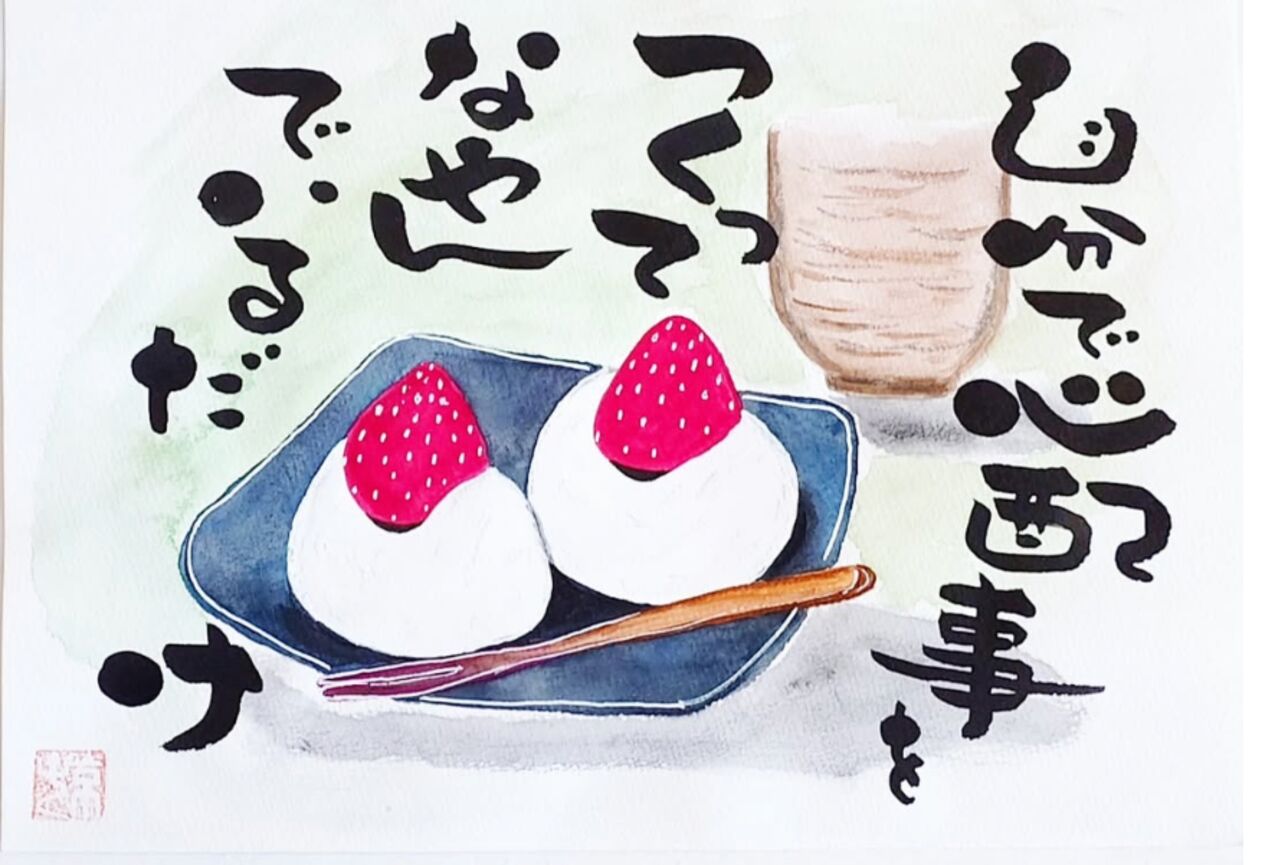 じ分で心配事を
つくって
なやん
でいるだけ